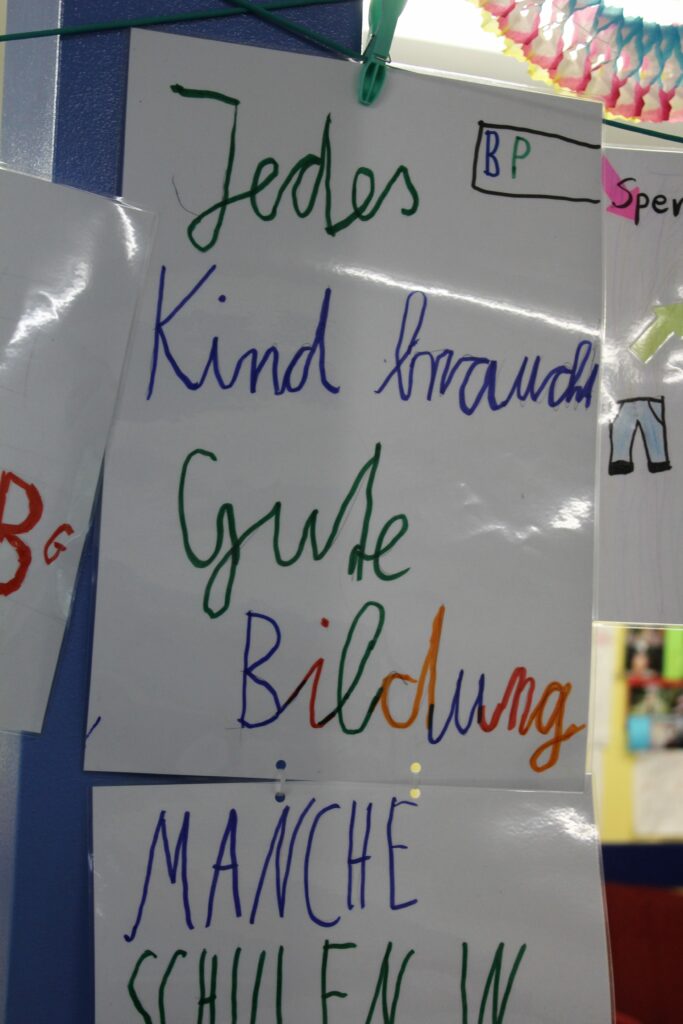 Jedes
BP
Kind braucht
Gute
Bildung
MANCHE
SCHULEN IN
Bg
Spen